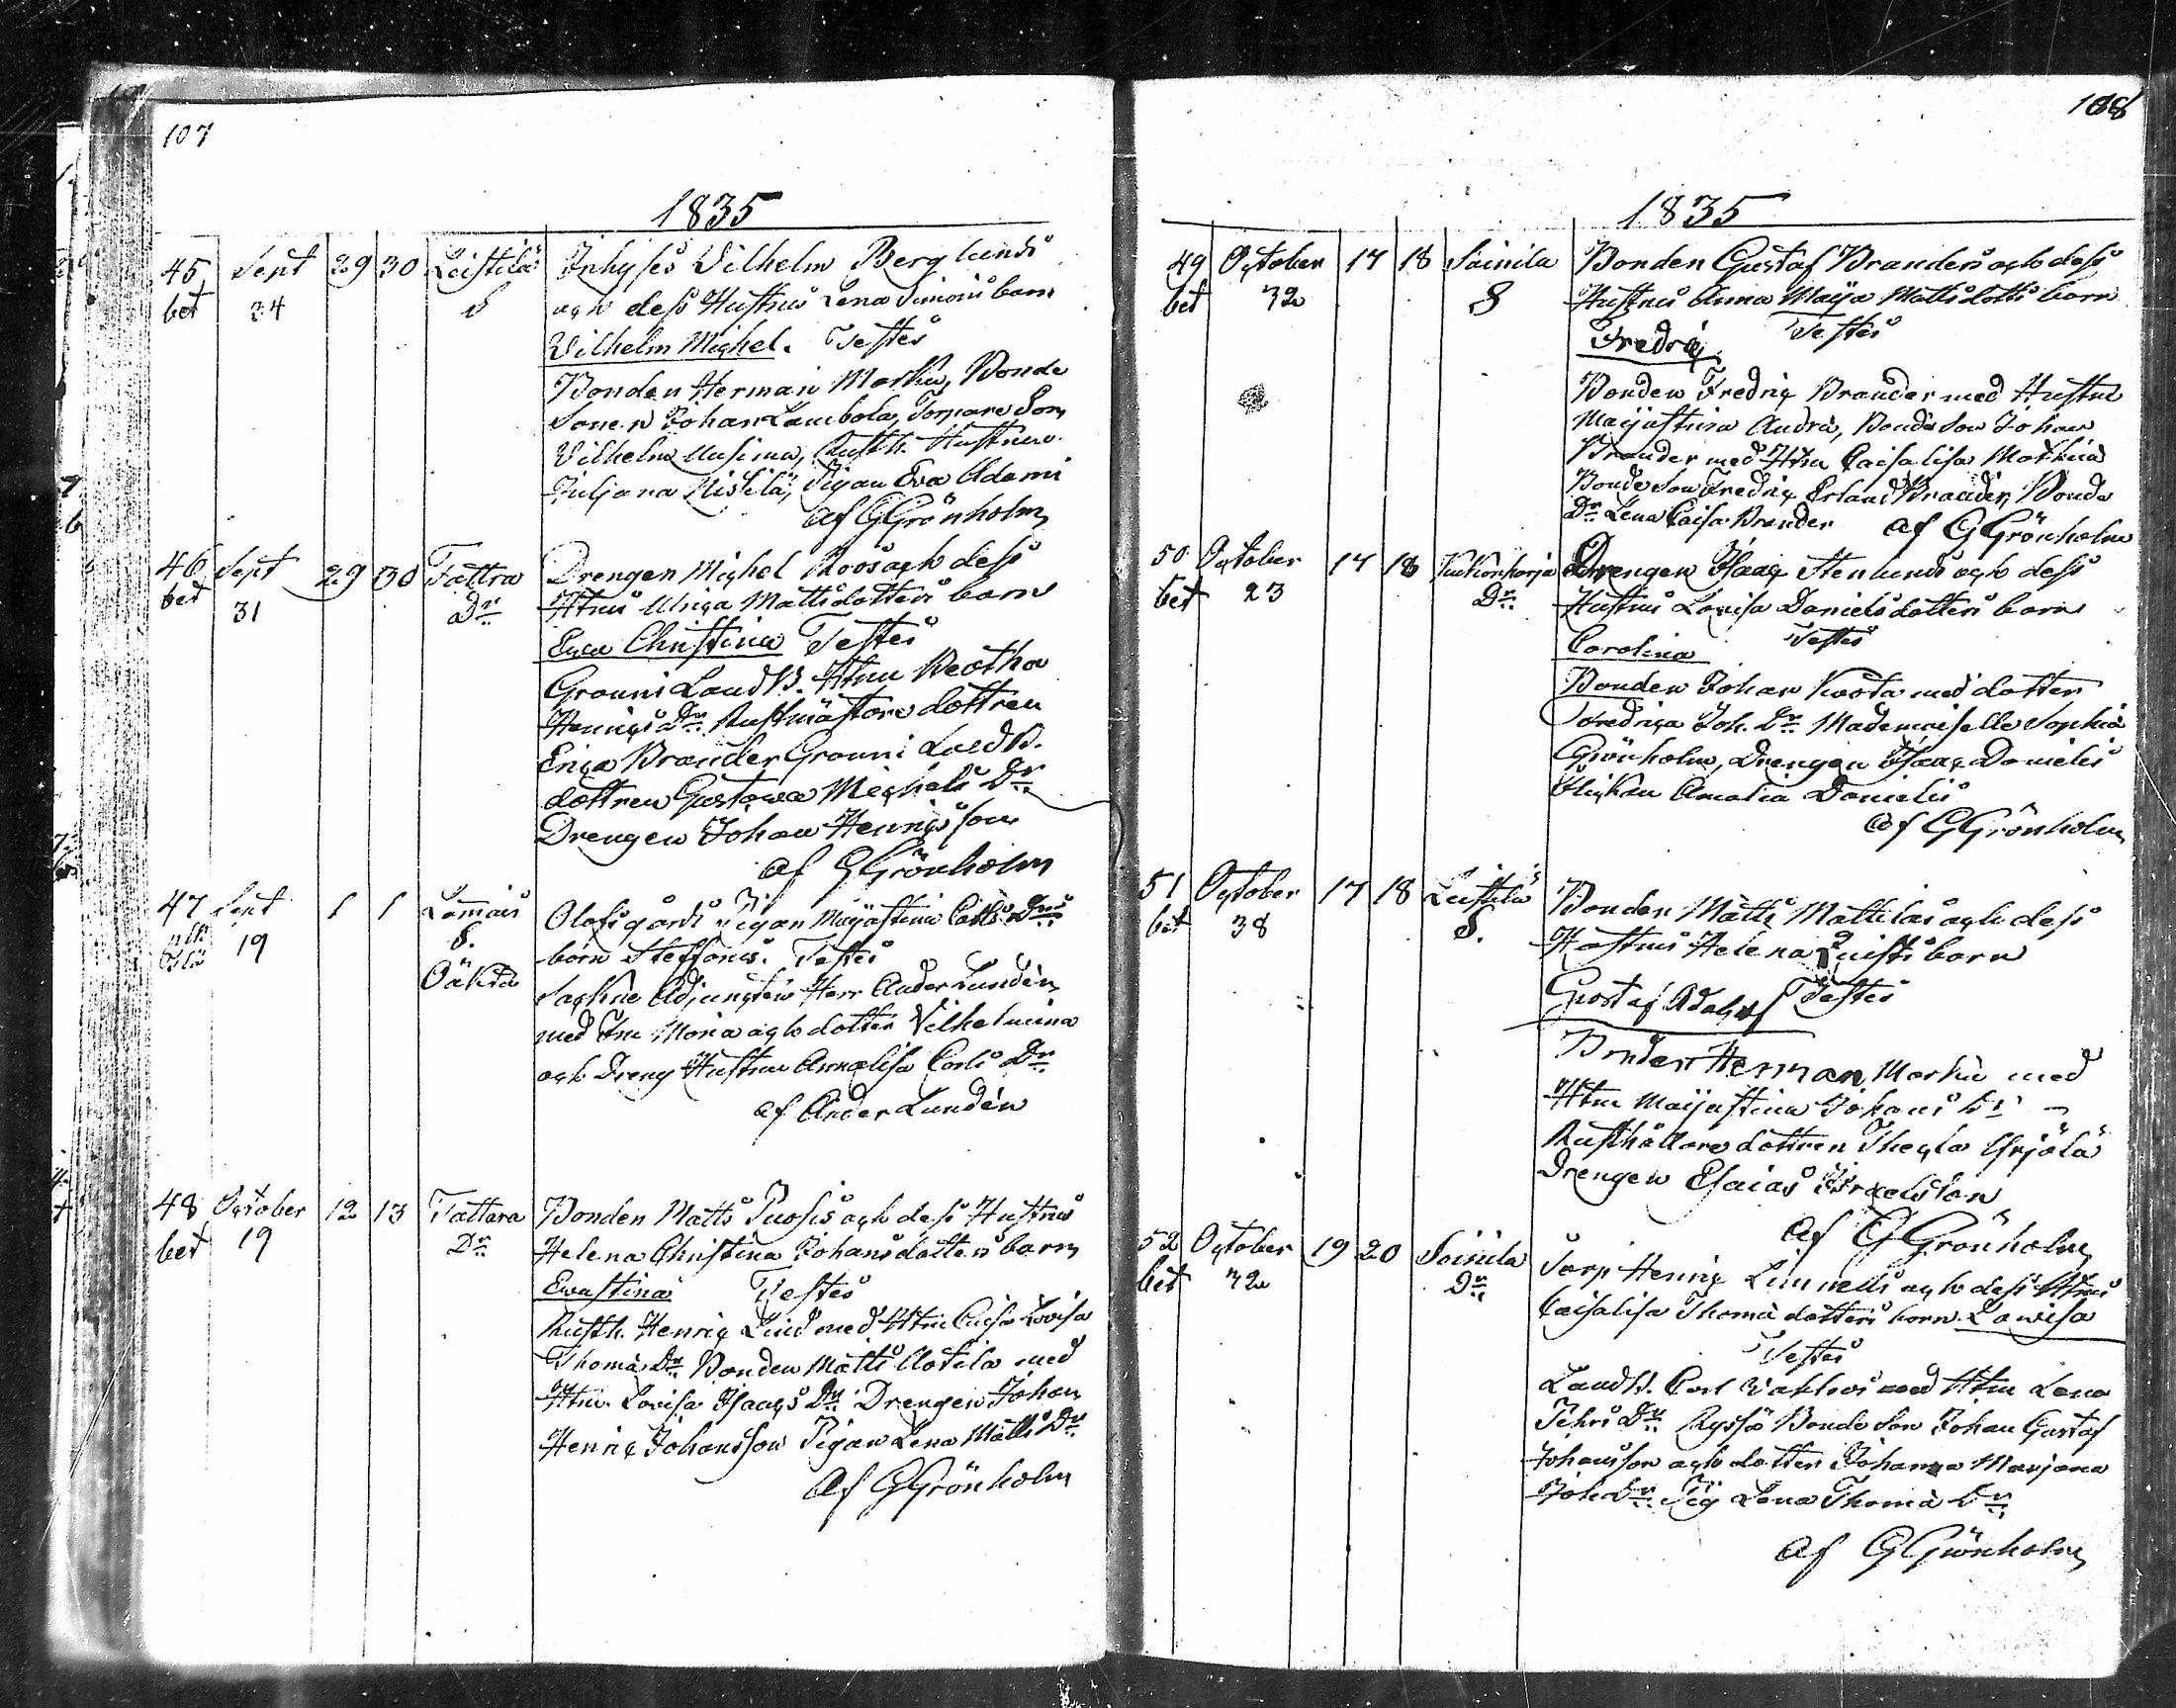 107
1835
45 Sept 29 30 Leistilä Inhyses Wilhelm Berglunds
bet 34 S och dess Hustrus Lena Simons barn
Wilhelm Michel. Testes
Bonden Herman Marku, Bonde
Sonen Johan Lambola, Torpare Son
Vilhelm Uusimu, Rusth. Hustrun
Juljana Mistilä, Pigan Eva Adami
af GGrönholm
46 Sept 29 30 Tattra Drengen Michel Roos och dess
bet 31 Dr Htrus Ulrica Mattsdotters barn
Ewa Christina Testes
Granni Land B. Htru Beatha
Henrics Dr Rustmästare dottren
Erica Brander Granni Land B.
dottren Gustawa Michels Dr
Drengen Johan Henricsson
af GGrönholm
47 Sept 1 1 Lammais Olofsgårds Pigan Majastina Carls Drs
19 S. barn Steffanus. Testes
Oäkta Sachne Adjuncten Herr Ander Lundén
med Fru Maria och dotter Vilhelmina
och Dreng Hustrun Annalisa Carls Dr
af Ander Lundén
48 October 12 13 Tattara Bonden Matts Puosis och dess Hustrus
bet 19 Dr Helena Christina Johansdotters barn
Ewastina Testes
Rusth. Henric Lind med Htru Caisa Lovisa
Thoma Dr Bonden Matts Uotila med
Htru Lovisa Isaacs Dr Drengen Johan
Henric Johansson Pigan Lena Matts Dr
af GGrönholm
108
1835
49 October 17 18 Soinila Bonden Gustaf Branders och dess
bet 32 S Hustrus Anna Maja Mattsdotts barn
Fredric Testes
Bonden Fredric Brander med Hustru
Majastina Andra, Bonde Son Johan
Brander med Htru Caisalisa Mathia
Bonde Son Fredric Erland Brander, Bonde
Dr Lena Caisa Brander af GGrönholm
50 October 17 18 Kukonharja Drengen Isaac Stenlunds och dess
bet 23 Dr Hustrus Lovisa Danielsdotters barn
Carolina Testes
Bonden Johan Kvota med dotter
Fredrica Joh. Dr Mademoiselle Sophia
Grönholm, Drengen Isaac Daniels
Flickan Amalia Daniels
af GGrönholm
51 October 17 18 Leistilä Bonden Matts Mattilas och dess
bet 38 S. Hustrus Helena Quists barn
Gustaf Adolf Testes
Bonden Herman Marku med
Htru Majastina Johans Dr
Rusthållare dottren Thecla Yrjölä
Drengen Esaias Israelsson
af GGrönholm
52 October 19 20 Soinila Sorp Henric Linnells och dess Htrus
bet 32 Dr Caisalisa Thomadotters barn Lowisa
Testes
Land B. Carl med Htru Lena
Pehrs Dr Ryssä Bonde Son Johan Gustaf
Johansson och dotter Johanna Marjana
Joh. Dr Pig Lena Thoma Dr
af GGrönholm